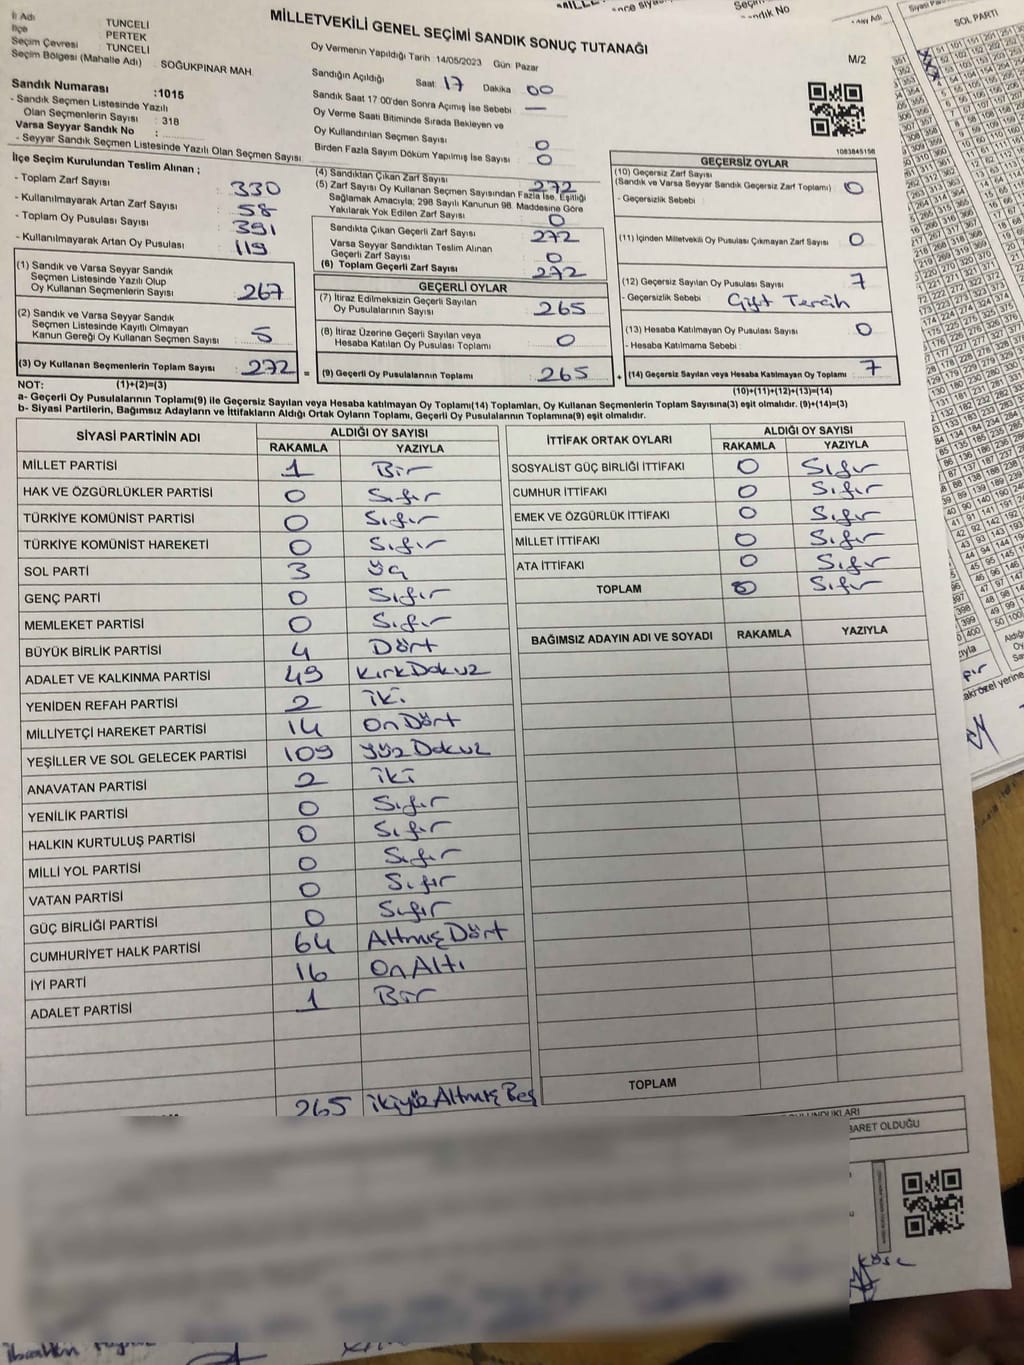 MİLLETVEKİLİ GENEL SEÇİMİ SANDIK SONUÇ TUTANAĞI
M/2
İl Adı : TUNCELİ
İlçe : PERTEK
Seçim Çevresi : TUNCELİ
Seçim Bölgesi (Mahalle Adı) : SOĞUKPINAR MAH.
Sandık Numarası :1015
- Sandık Seçmen Listesinde Yazılı
Olan Seçmenlerin Sayısı : 318
Varsa Seyyar Sandık No :
- Seyyar Sandık Seçmen Listesinde Yazılı Olan Seçmen Sayısı
Oy Vermenin Yapıldığı Tarih :14/05/2023 Gün: Pazar
Sandığın Açıldığı Saat: 17 Dakika 00
Sandık Saat 17 00'den Sonra Açımış İse Sebebi : —
Oy Verme Saati Bitiminde Sırada Bekleyen ve
Oy Kullandırılan Seçmen Sayısı : 0
Birden Fazla Sayım Döküm Yapılmış İse Sayısı : 0
1083845158
İlçe Seçim Kurulundan Teslim Alınan ;
- Toplam Zarf Sayısı : 330
- Kullanılmayarak Artan Zarf Sayısı : 58
- Toplam Oy Pusulası Sayısı : 391
- Kullanılmayarak Artan Oy Pusulası : 119
(1) Sandık ve Varsa Seyyar Sandık
Seçmen Listesinde Yazılı Olup
Oy Kullanan Seçmenlerin Sayısı : 267
(2) Sandık ve Varsa Seyyar Sandık
Seçmen Listesinde Kayıtlı Olmayan
Kanun Gereği Oy Kullanan Seçmen Sayısı : 5
(3) Oy Kullanan Seçmenlerin Toplam Sayısı : 272 =
(4) Sandıktan Çıkan Zarf Sayısı : 272
(5) Zarf Sayısı Oy Kullanan Seçmen Sayısından Fazla İse, Eşitliği
Sağlamak Amacıyla; 298 Sayılı Kanunun 98. Maddesine Göre
Yakılarak Yok Edilen Zarf Sayısı : 0
Sandıkta Çıkan Geçerli Zarf Sayısı : 272
Varsa Seyyar Sandıktan Teslim Alınan
Geçerli Zarf Sayısı : 0
(6) Toplam Geçerli Zarf Sayısı : 272
GEÇERLİ OYLAR
(7) İtiraz Edilmeksizin Geçerli Sayılan
Oy Pusulalarının Sayısı : 265
(8) İtiraz Üzerine Geçerli Sayılan veya
Hesaba Katılan Oy Pusulası Toplamı : 0
(9) Geçerli Oy Pusulalarının Toplamı : 265 +
GEÇERSİZ OYLAR
(10) Geçersiz Zarf Sayısı
(Sandık ve Varsa Seyyar Sandık Geçersiz Zarf Toplamı) : 0
- Geçersizlik Sebebi :
(11) İçinden Milletvekili Oy Pusulası Çıkmayan Zarf Sayısı : 0
(12) Geçersiz Sayılan Oy Pusulası Sayısı : 7
- Geçersizlik Sebebi : Çift Tercih
(13) Hesaba Katılmayan Oy Pusulası Sayısı : 0
- Hesaba Katılmama Sebebi :
(14) Geçersiz Sayılan veya Hesaba Katılmayan Oy Toplamı : 7
NOT: (1)+(2)=(3) (10)+(11)+(12)+(13)=(14)
a- Geçerli Oy Pusulalarının Toplamı(9) ile Geçersiz Sayılan veya Hesaba katılmayan Oy Toplamı(14) Toplamları, Oy Kullanan Seçmenlerin Toplam Sayısına(3) eşit olmalıdır. (9)+(14)=(3)
b- Siyasi Partilerin, Bağımsız Adayların ve İttifakların Aldığı Ortak Oyların Toplamı, Geçerli Oy Pusulalarının Toplamına(9) eşit olmalıdır.
SİYASİ PARTİNİN ADI ALDIĞI OY SAYISI
RAKAMLA YAZIYLA
MİLLET PARTİSİ 1 Bir
HAK VE ÖZGÜRLÜKLER PARTİSİ 0 Sıfır
TÜRKİYE KOMÜNİST PARTİSİ 0 Sıfır
TÜRKİYE KOMÜNİST HAREKETİ 0 Sıfır
SOL PARTİ 3 Üç
GENÇ PARTİ 0 Sıfır
MEMLEKET PARTİSİ 0 Sıfır
BÜYÜK BİRLİK PARTİSİ 4 Dört
ADALET VE KALKINMA PARTİSİ 49 Kırk Dokuz
YENİDEN REFAH PARTİSİ 2 iki
MİLLİYETÇİ HAREKET PARTİSİ 14 On Dört
YEŞİLLER VE SOL GELECEK PARTİSİ 109 Yüz Dokuz
ANAVATAN PARTİSİ 2 iki
YENİLİK PARTİSİ 0 Sıfır
HALKIN KURTULUŞ PARTİSİ 0 Sıfır
MİLLİ YOL PARTİSİ 0 Sıfır
VATAN PARTİSİ 0 Sıfır
GÜÇ BİRLİĞİ PARTİSİ 0 Sıfır
CUMHURİYET HALK PARTİSİ 64 Altmış Dört
İYİ PARTİ 16 On Altı
ADALET PARTİSİ 1 Bir
265 ikiyüz Altmış Beş
İTTİFAK ORTAK OYLARI ALDIĞI OY SAYISI
RAKAMLA YAZIYLA
SOSYALİST GÜÇ BİRLİĞİ İTTİFAKI 0 Sıfır
CUMHUR İTTİFAKI 0 Sıfır
EMEK VE ÖZGÜRLÜK İTTİFAKI 0 Sıfır
MİLLET İTTİFAKI 0 Sıfır
ATA İTTİFAKI 0 Sıfır
TOPLAM 0 Sıfır
BAĞIMSIZ ADAYIN ADI VE SOYADI RAKAMLA YAZIYLA
TOPLAM
BARET OLDUĞU
SOL PARTİ